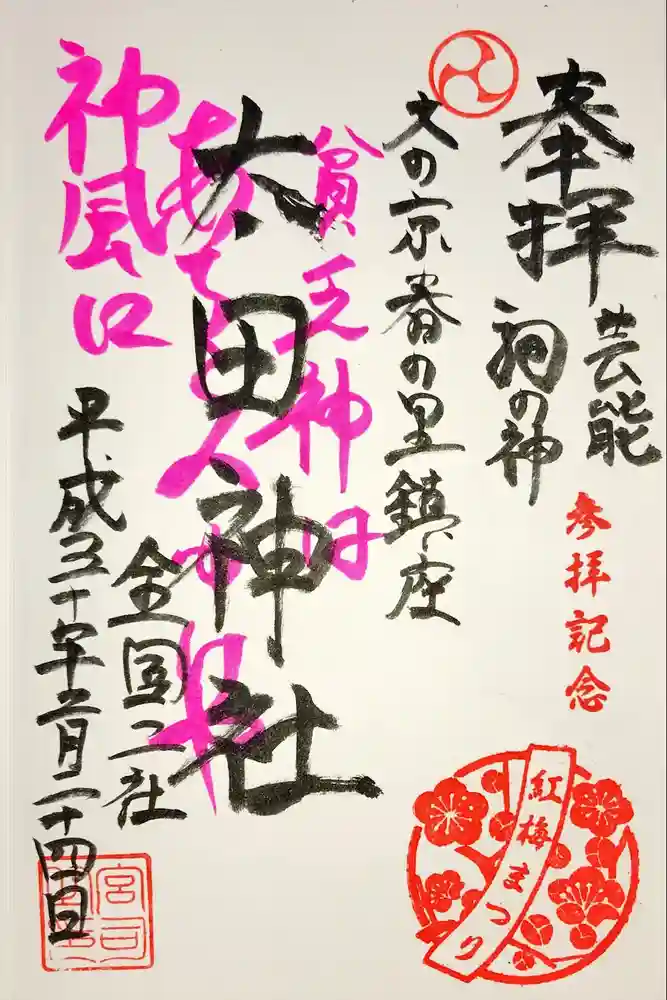 奉拝
芸能
祠の神
文の京春の里鎮座
貧乏神は
太田神社
神風に
全国二社
平成三十年二月二十四日
参拝記念
紅梅まつり
宮司